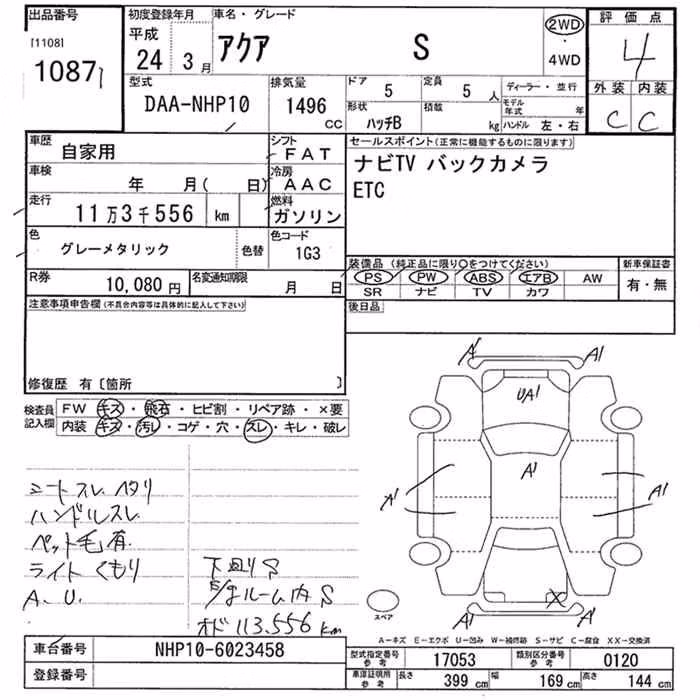 出品番号
[1108]
1087
初度登録年月
平成
24 3月
車名・グレード
アクア S
2WD
・
4WD
評価点
4
外装 内装
C C
型式
DAA-NHP10
排気量
1496 CC
ドア 5
定員 5 人
形状 ハッチB
積載 kg
ディーラー・並行
モデル年式 年
ハンドル 左・右
車歴
自家用
シフト
FAT
車検
年 月( 日)
冷房
AAC
走行
11万3千556 km
燃料
ガソリン
色
グレーメタリック
色替
色コード
1G3
R券
10,080 円
名変通知期限
月 日
セールスポイント(正常に機能するものに限ります)
ナビTV バックカメラ
ETC
装備品 (純正品に限り○をつけてください)
PS PW ABS エアB AW
SR ナビ TV カワ
新車保証書
有・無
後日品
注意事項申告欄(不具合内容等は具体的に記入して下さい)
修復歴 有〔箇所 〕
検査員
記入欄
FW キズ・飛石・ヒビ割・リペア跡・×要
内装 キズ・汚レ・コゲ・穴・スレ・キレ・破レ
シートスレ ヘタリ
ハンドルスレ
ペット毛有
ライトくもり
A.U.
下廻りS
E/gルーム内S
オド113.556km
A1 A1
UA1
A1
A1 A1
X
A1 A1
スペア
A―キズ E―エクボ U―凹み W―補修跡 S―サビ C―腐食 XX―交換済
車台番号
NHP10-6023458
登録番号
型式指定番号
参考
17053
類別区分番号
参考
0120
車庫証明所
参考
長さ 399 cm
幅 169 cm
高さ 144 cm